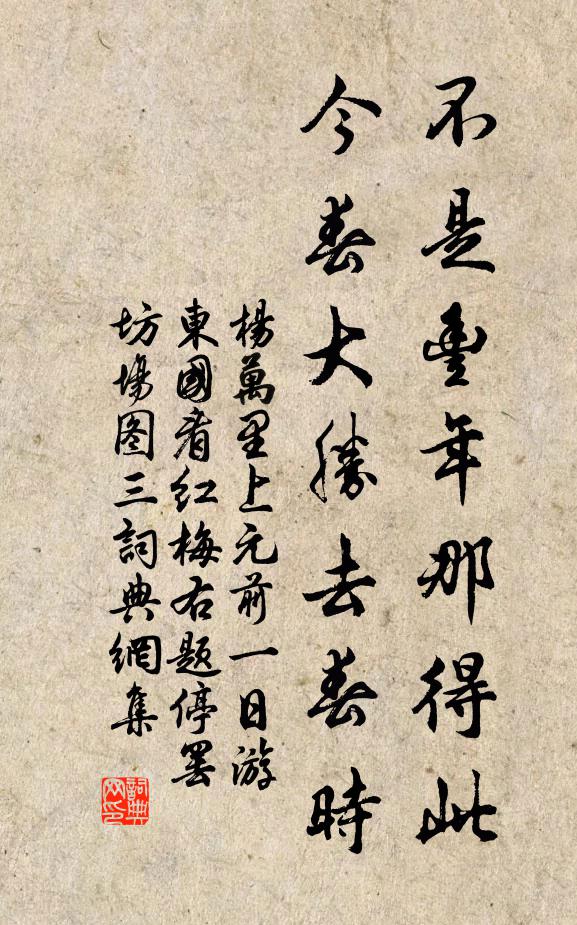 不是豐年那得此
今春大勝去春時
楊萬里上元前一日游
東國看红梅右題停罢
坊場图三詞典網集
詞典網印